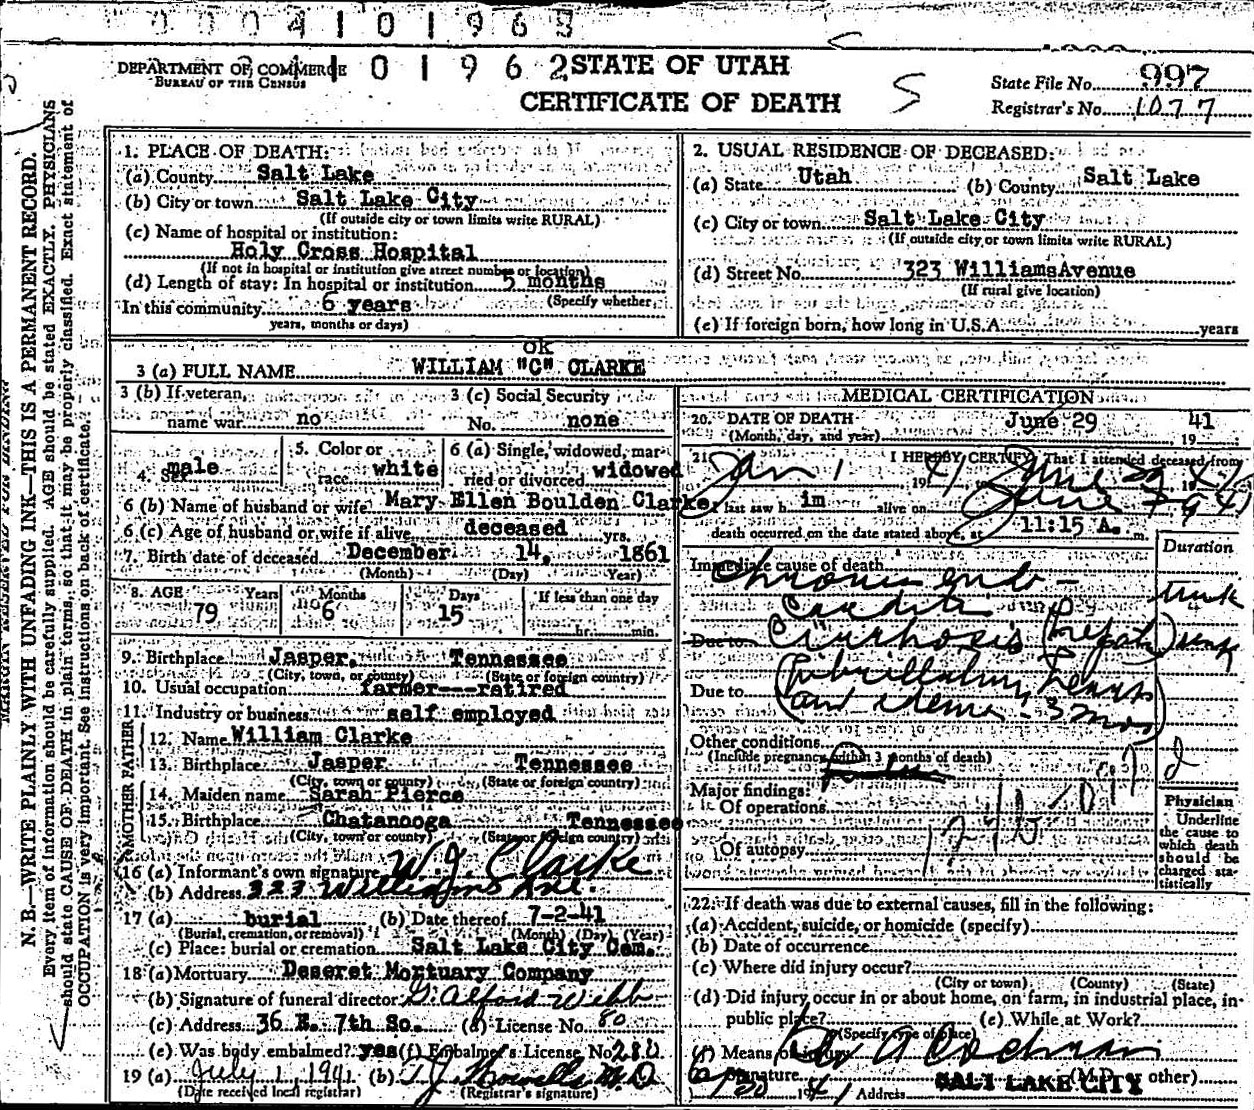 0004101968
DEPARTMENT OF COMMERCE
BUREAU OF THE CENSUS
101962
STATE OF UTAH
CERTIFICATE OF DEATH
S
State File No. 997
Registrar's No. 1077
N. B.—WRITE PLAINLY WITH UNFADING INK—THIS IS A PERMANENT RECORD.
Every item of information should be carefully supplied. AGE should be stated EXACTLY. PHYSICIANS
should state CAUSE OF DEATH in plain terms, so that it may be properly classified. Exact statement of
OCCUPATION is very important. See instructions on back of certificate.
1. PLACE OF DEATH:
(a) County Salt Lake
(b) City or town Salt Lake City
(If outside city or town limits write RURAL)
(c) Name of hospital or institution:
Holy Cross Hospital
(If not in hospital or institution give street number or location)
(d) Length of stay: In hospital or institution 5 months
In this community 6 years (Specify whether
years, months or days)
2. USUAL RESIDENCE OF DECEASED:
(a) State Utah (b) County Salt Lake
(c) City or town Salt Lake City
(If outside city or town limits write RURAL)
(d) Street No. 323 WilliamsAvenue
(If rural give location)
(e) If foreign born, how long in U.S.A. years
ok
3 (a) FULL NAME WILLIAM "C" CLARKE
3 (b) If veteran, 3 (c) Social Security
name war no No. none
4. Sex male 5. Color or race white 6 (a) Single, widowed, married or divorced widowed
6 (b) Name of husband or wife Mary Ellen Boulden Clarke
6 (c) Age of husband or wife if alive deceased yrs.
7. Birth date of deceased December 14, 1861
(Month) (Day) Year)
8. AGE Years Months Days If less than one day
79 6 15 hr. min.
9. Birthplace Jasper, Tennessee
(City, town, or county) (State or foreign country)
10. Usual occupation farmer---retired
11. Industry or business self employed
FATHER
12. Name William Clarke
13. Birthplace Jasper Tennessee
(City, town or county) (State or foreign country)
MOTHER
14. Maiden name Sarah Pierce
15. Birthplace Chatanooga Tennessee
(City, town or county) (State or foreign country)
16 (a) Informant's own signature W. J. Clarke
(b) Address 323 Williams Ave.
17 (a) burial (b) Date thereof 7-2-41
(Burial, cremation, or removal) (Month) (Day) (Year)
(c) Place: burial or cremation Salt Lake City Cem.
18 (a) Mortuary Deseret Mortuary Company
(b) Signature of funeral director G. Alford Webb
(c) Address 36 E. 7th So. (d) License No. 80
(e) Was body embalmed? yes (f) Embalmer's License No. 280
19 (a) July 1, 1941 (b) T. J. Howells M.D.
(Date received local registrar) (Registrar's signature)
MEDICAL CERTIFICATION
20. DATE OF DEATH June 29 41
(Month, day, and year) 19
21. I HEREBY CERTIFY, That I attended deceased from
Jan 1 1941 to June 29 1941
I last saw him alive on June 29 1941
death occurred on the date stated above, at 11:15 A. m.
Duration
Immediate cause of death
Chronic endo-
carditis
Due to Cirrhosis (hepatic) unk
Due to (Fibrillating heart
and edema - 3 mos)
Other conditions
(Include pregnancy within 3 months of death)
Major findings:
Of operations
Of autopsy
124b
Physician
Underline
the cause to
which death
should be
charged sta-
tistically
22. If death was due to external causes, fill in the following:
(a) Accident, suicide, or homicide (specify)
(b) Date of occurrence
(c) Where did injury occur?
(City or town) (County) (State)
(d) Did injury occur in or about home, on farm, in industrial place, in-
public place? (e) While at Work?
(Specify type of place)
(f) Means of injury
Signature A Cochman
(M.D. or other)
1941 Address SALT LAKE CITY